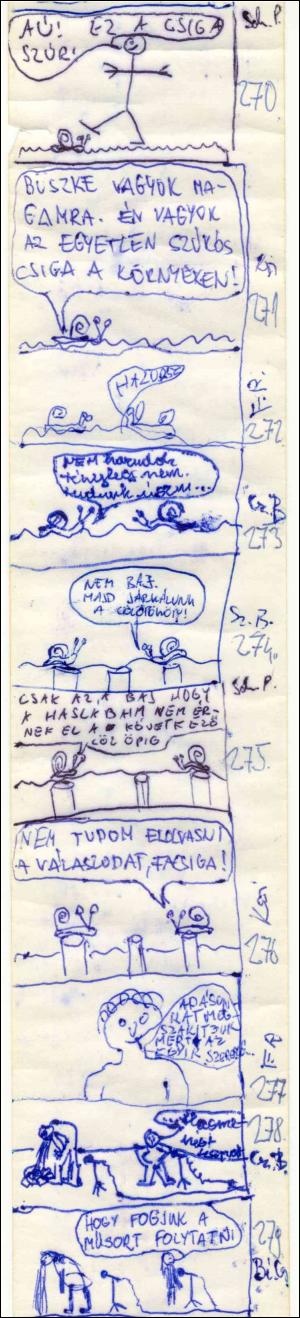 AÚ! EZ A CSIGA
SZÚR!
Sch. P.
270
BÜSZKE VAGYOK MA-
GAMRA. ÉN VAGYOK
AZ EGYETLEN SZÚRÓS
CSIGA A KÖRNYÉKEN!
271
HAZUDSZ
272
NEM hazudok
tényleg nem.
Cz. B
273
NEM BAJ.
MAJD JÁRKÁLUNK
A CÖLÖPÖKÖN!
Sz. B.
274.
Sch. P.
CSAK AZ A BAJ HOGY
A HASLÁBAIM NEM ÉR-
NEK EL A KÖVETKEZŐ
CÖLÖPIG
275.
NEM TUDOM ELOLVASNI
A VÁLASZODAT, FACSIGA!
276
ADÁSUN-
KAT MEG-
SZAKÍTJUK
MERT AZ
EGYIK
277
278
Cz. B.
HOGY FOGJUK A
MŰSORT FOLYTATNI
279